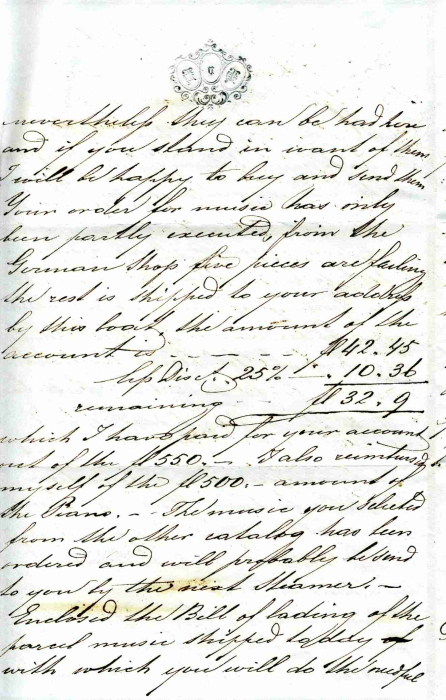 nevertheless they can be had here
and if you stand in want of them
I will be happy to buy and send them
Your order for music has only
been partly executed, from the
German Shop five pieces are failing
the rest is shipped to your address
by this boat, the amount of the
account is - - - - - ƒ 42.45
less Disct. 25% - . 10.36
remaining - ƒ 32.9
which I have paid for your account
out of the ƒ 550.- I also reimbursed
myself of the ƒ 500.- amount of
the Piano. - The music you selected
from the other catalog has been
ordered and will probably be send
to you by the next Steamer. -
Enclosed the Bill of lading of the
parcel music shipped today
with which you will do the needful